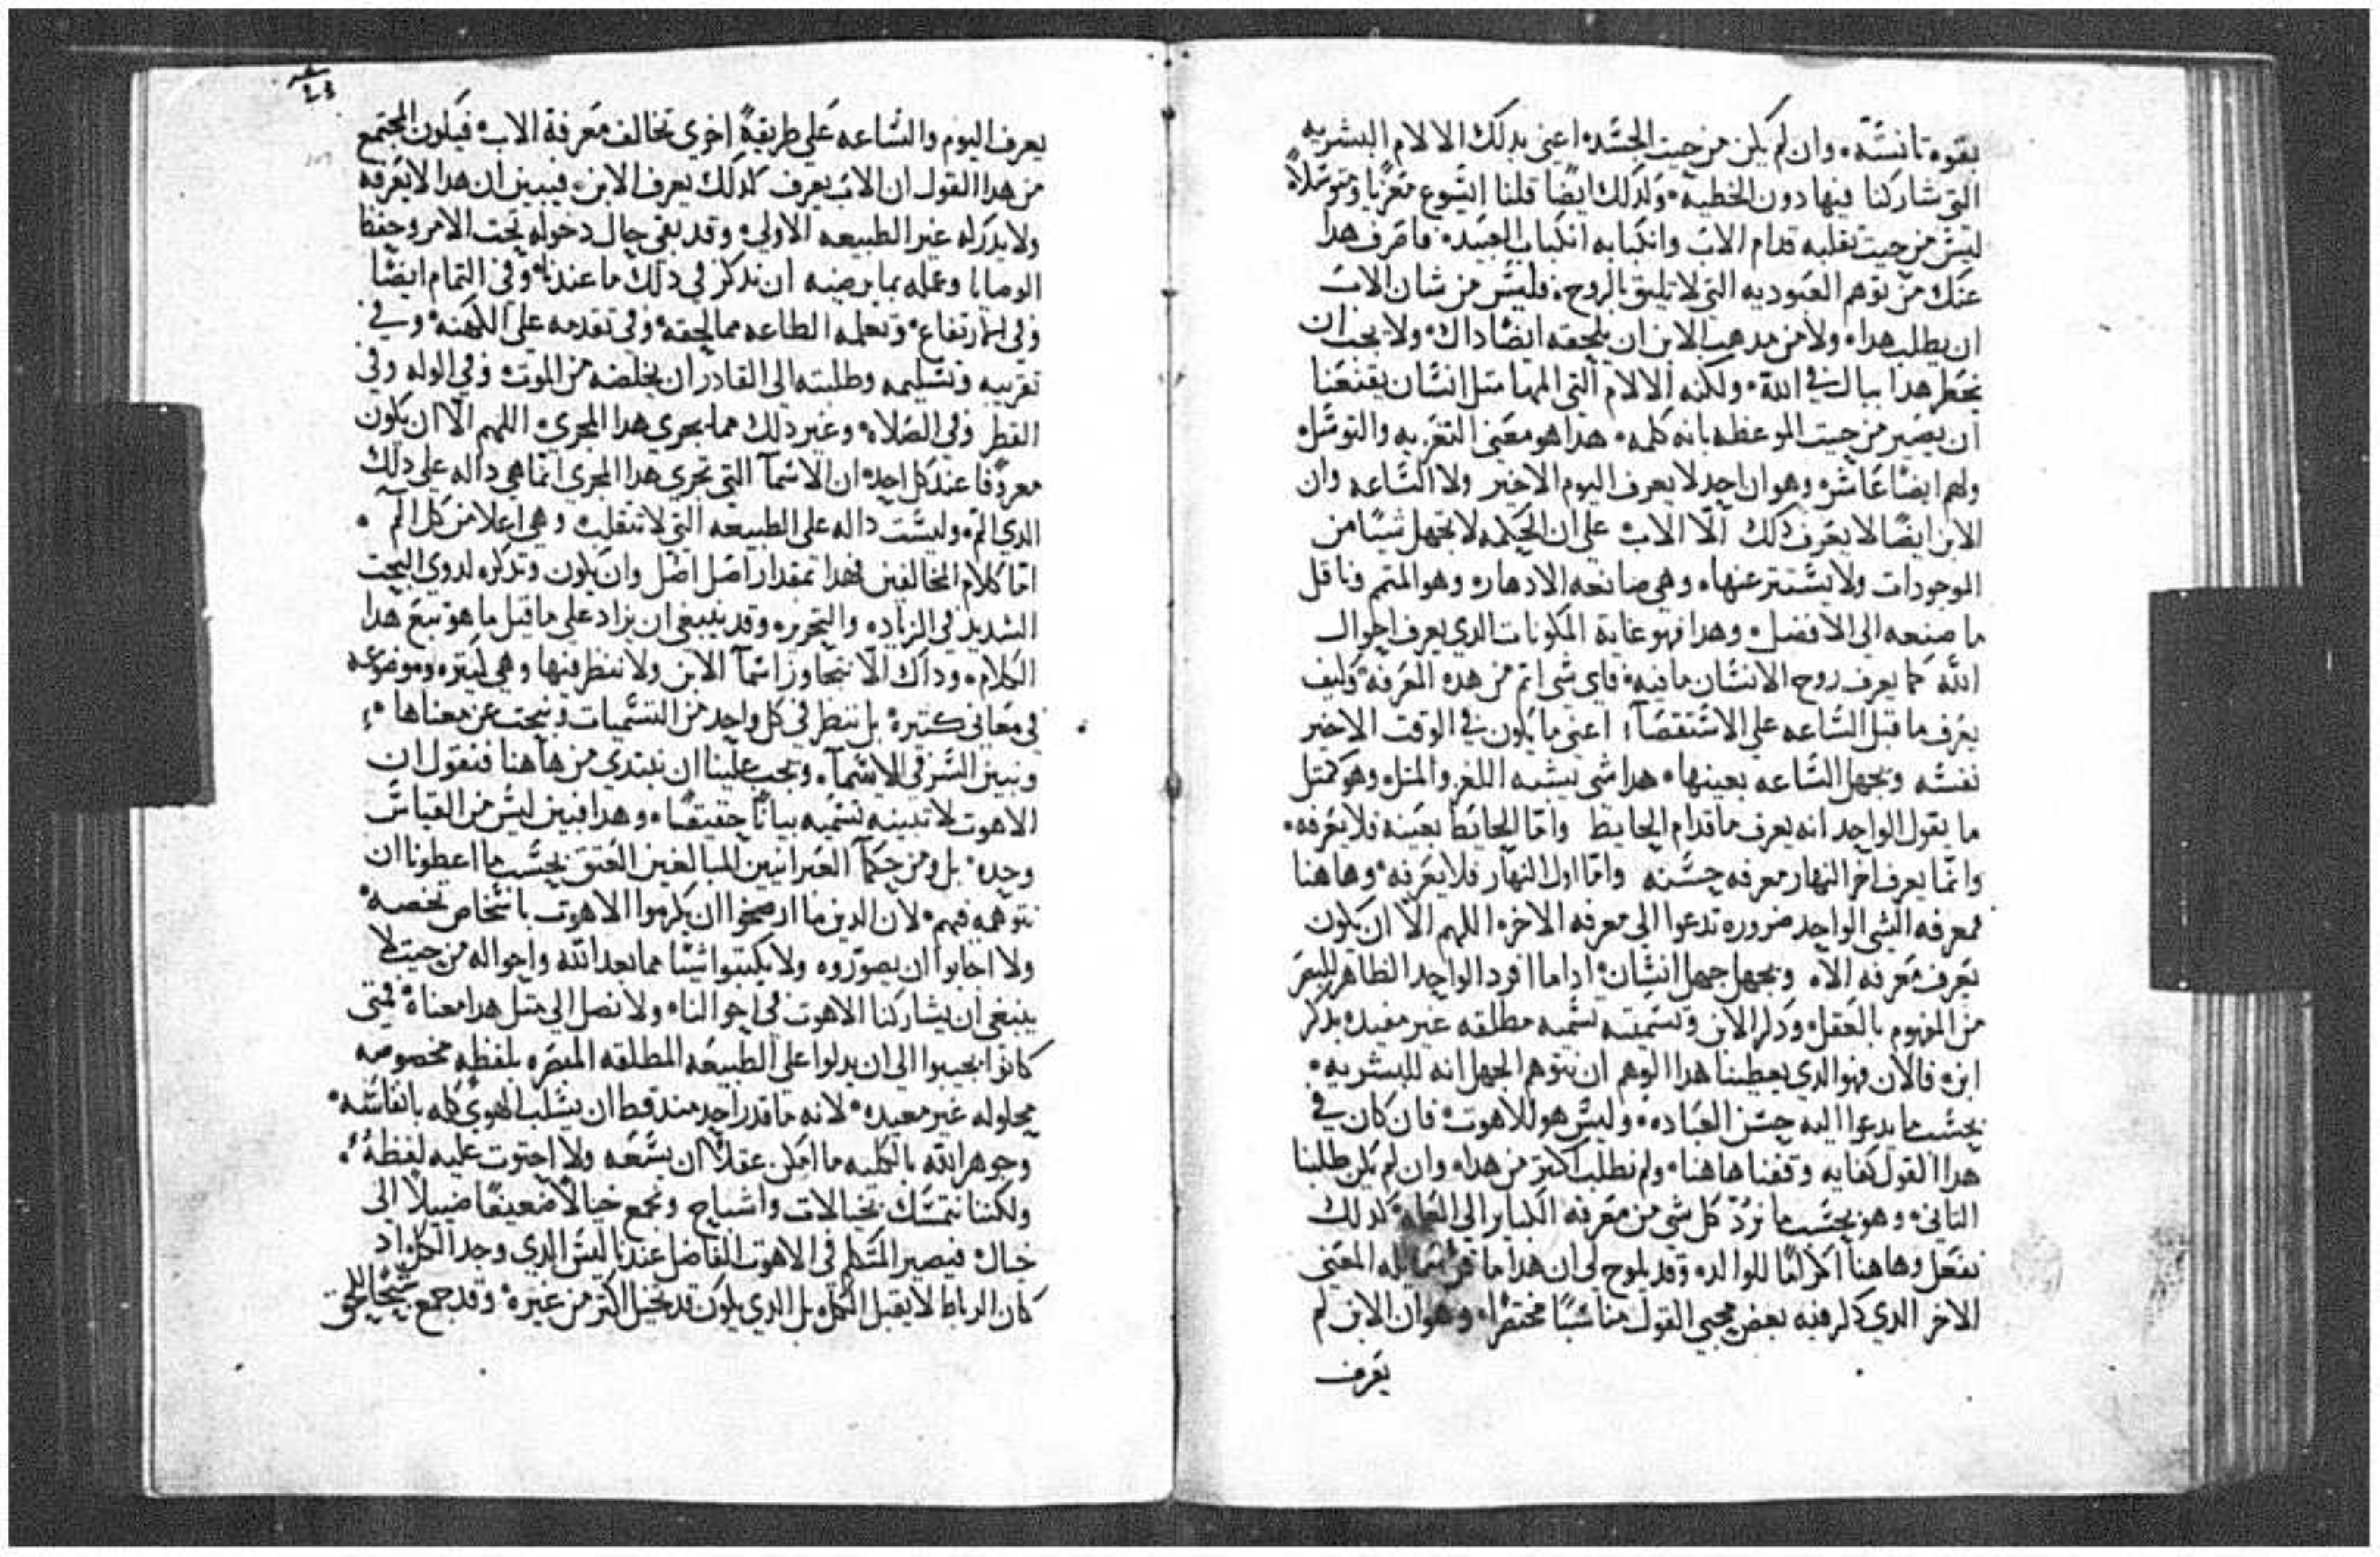 بقوه تانسه وان لم يكن من حيث الجسد اعني بدلك الالام البشريه
التي شاركنا فيها دون الخطيه ولدلك ايضًا قلنا ايسوع معزيا ومتوسلاً
ليس من حيث تقلبه قدام الاب وانكبابه انكباب العبيد فاصرف هدا
عنك من توهم العبوديه التي لا تليق بالروح فليس من شان الاب
ان يطلب هدا ولا من مدهب الابن ان يلحقه ايضًا داك ولا يجب ان
يخطر هدا ببالك في الله ولكنه الالام التي المها مثل انسان يقنعنا
ان يصير من حيث الموعظه بانه كلمه هدا هو معني التعزيه والتوسل
ولهم ايضًا عاشره وهو ان احد لا يعرف اليوم الاخير ولا الساعه وان
الابن ايضًا لا يعرف دلك الّا الاب علي ان الحكمه لا تجهل شيئًا من
الموجودات ولا يستتر عنها وهي صانعه الادهار وهو المتمم وناقل
ما صنعه الي الافضل وهدا فهو غاية المكونات الدي يعرف احوال
الله كما يعرف روح الانسان ما فيه فاي شي اتم من هده المعرفه وكيف
يعرف ما قبل الساعه علي الاستقصآ اعني ما يكون في الوقت الاخير
نفسه ويجهل الساعه بعينها هدا شي يشبه اللغز والمثل وهو كمثل
ما يقول الواحد انه يعرف ما قدام الحايط وامّا الحايط بعينه فلا يعرفه
وانما يعرف اخر النهار معرفه حسنه وامّا اول النهار فلا يعرفه وهاهنا
فمعرفه الشي الواحد ضروره تدعوا الي معرفه الاخر اللهم الّا ان يكون
يعرف معرفه الاه ويجهل جهل انسان اداما افرد الواحد الظاهر للبصر
من المفهوم بالعقل ودكر الابن وتسميته تسميه مطلقه غير مقيده بدكر
ابن فالان فهو الدي يعطينا هدا الوهم ان نتوهم الجهل انه للبشريه
بحسب ما يدعوا اليه حسن العباده وليس هو للاهوت فان كان في
هدا القول كفايه وقفنا هاهنا ولم نطلب اكثر من هدا وان لم يكن طلبنا
الثاني وهو بحسب ما نردّ كل شي من معرفه الكباير الي العله كدلك
نفعل وهاهنا اكرامًا للوالد وقد يلوح لي ان هدا ما المعني
الاخر الدي دكر فيه بعض محبي القول مناسبًا مختصرًا وهو ان الابن لم
يعرف
يعرف اليوم والساعه علي طريقةً اخري تخالف معرفة الاب فيكون المجتمع
من هدا القول ان الاب يعرف كدلك يعرف الابن فيبين ان هدا لا يعرفه
ولا يدركه غير الطبيعه الاولي وقد بقي حال دخوله تحت الامر وحفظ
الوصايا وعمله بما يرضيه ان ندكر في دلك ما عندنا وفي التمام ايضًا
وفي الارتفاع وتعلمه الطاعه مما لحقه وفي تقدمه علي الكهنه وفي
تقريبه وتسليمه وطلبته الي القادر ان يخلصه من الموت وفي الوله وفي
القطر وفي الصلاه وغير دلك مما يجري هدا المجري اللهم الّا ان يكون
معروفا عند كل احد ان الاسمآ التي تجري هدا المجري انما هي داله علي دلك
الدي الم وليست داله علي الطبيعه التي لا تنقلب وهي اعلا من كل الم
امّا كلام المخالفين فهدا بمقدار اصل اصل وان يكون وتدكره لدوي البحث
الشديد في الزياده والتحرير وقد ينبغي ان يزاد علي ما قيل ما هو تبع هدا
الكلام وداك الّا نتجاوز اسمآ الابن ولا ننظر فيها وهي كثيره وموضوعه
في معاني كثيرة بل ننظر في كل واحد من التسميات ونبحث عن معناها
ونبين السر في الاسمآ ويجب علينا ان نبتدي من هاهنا فنقول ان
الاهوت لا تبينه تسميه بيانًا حقيقيًا وهدا فبين ليس من القياس
وحده بل ومن حكمآ العبرانيين المبالغين العتق بحسب ما اعطونا ان
نتوهمه فيهم لان الدين ما ارتضوا ان يكرموا الاهوت باشخاص تخصه
ولا اجابوا ان يصوّروه ولا يكتبوا شيئا مما بعد الله واحواله من حيث لا
ينبغي ان يشاركنا الاهوت في احوالنا ولا نصل الي مثل هدا معناه فمتي
كانوا يجيبوا الي ان يدلوا علي الطبيعه المطلقه بلفظه مخصوصه
محلوله غير معيده لانه ما قدر احد مند قط ان يسلب الهوي كله بانفاسه
وجوهر الله بالكليه ما امكن عقلاً ان يسعه ولا احتوت عليه لفظهً
ولكننا نتمسك بخيالات واشباح ونجمع خيالاً ضعيفًا ضييلاً الي
خيال فيصير المتكلم في الاهوت الفاضل عندنا ليس الدي وجد الكل اد
كان الرباط لا يقبل الكل بل الدي يكون قد تخيل اكثر من غيره وقد جمع